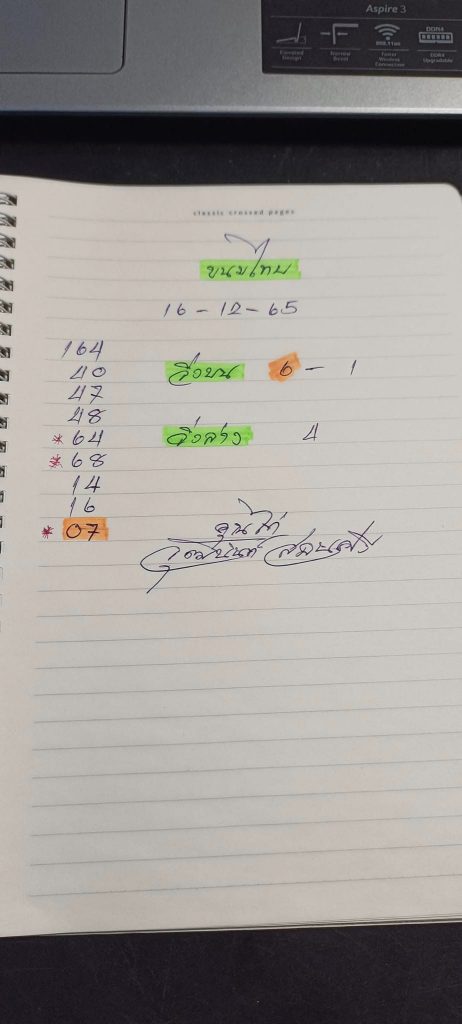 Aspire 3
802.11ac
Faster
Wireless
Connection
DDR4
DDR4
Upgradable
Narrow
Bezel
Design
classic crossed pages
ขนมไทย
16 - 12 - 65
164
40 วิ่งบน 6 - 1
47
48
*64 วิ่งล่าง 4
*68
14
16
*07